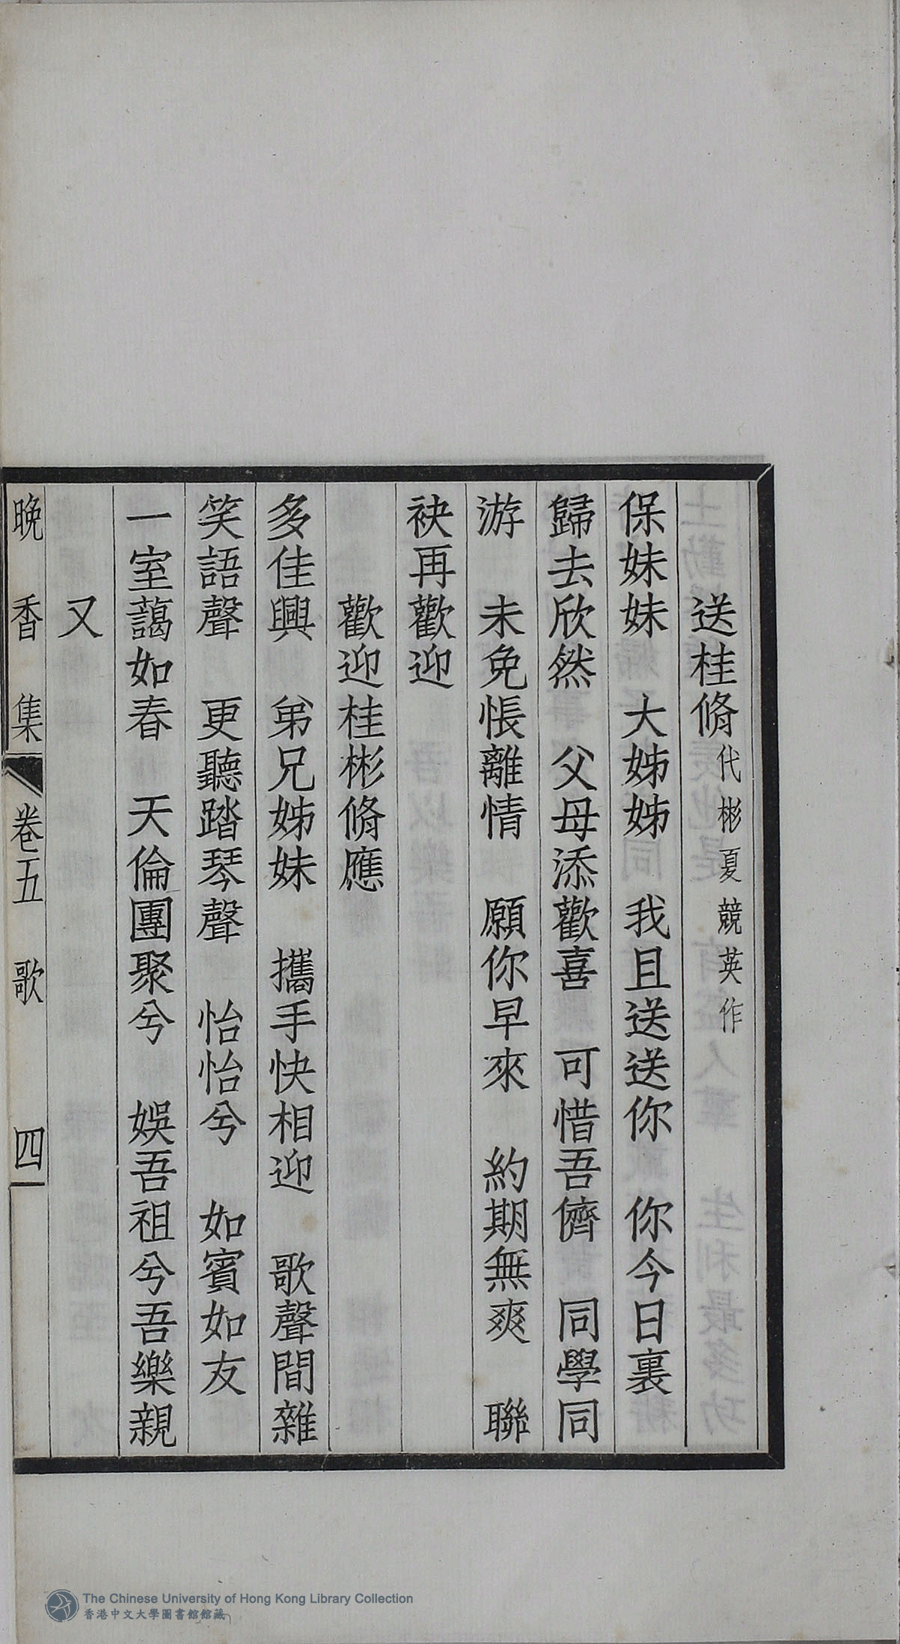 送桂脩代彬夏競英作
保妹妹　大姊姊　我且送送你　你今日裏
歸去欣然　父母添歡喜　可惜吾儕　同學同
游　未免悵離情　願你早來　約期無爽　聯
袂再歡迎
歡迎桂彬脩應
多佳興　弟兄姊妹　攜手快相迎　歌聲間雜
笑語聲　更聽踏琴聲　怡怡兮　如賓如友
一室藹如春　天倫團聚兮　娛吾祖兮吾樂親
又
晚香集　卷五　歌　四
The Chinese University of Hong Kong Library Collection
香港中文大學圖書館館藏